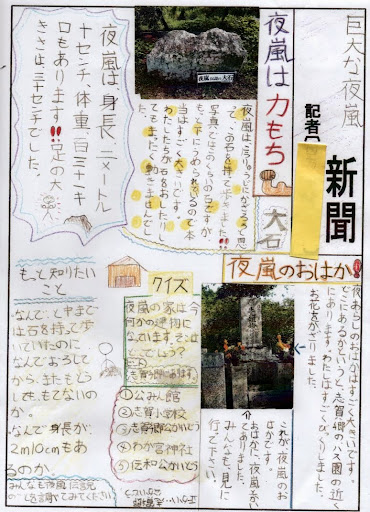 巨大な夜嵐
新聞
記者
夜嵐は力もち
夜嵐の大石
大石
て、この石を持って歩きました!!
写真だとこのくらいの石ですが
もっと下にうめられているので本
当はすごく大きいです。
わたしたちが石をおしたりし
てもまったく動きませんでし
た。
夜嵐は身長、二メートル
十センチ、体重、百三十一キ
ロもあります!!足の大
きさは、三十センチでした。
夜嵐のおはか!!
夜あらしのおはかはすごく大きいです。
どこにあるかというと、志賀郷のバス園の近く
にあります。わたしはすごくびっくりしました。
これが夜嵐のお
はかです。
おはかに夜嵐と書い
てありました。
みんなも、見に
行って下さい。
クイズ
夜嵐の家は今
何かの建物に
なっています。
①公みん館
②志賀小学校
③志賀郷公かいどう
④わか宮神社
⑤伝和公かいどう
もっと知りたい
こと
なんで、と中まで
は石を持って歩
いていたのに
なんでおろして
から、またもどう
しても、もてないの
か。
なんで身長が、
2m10cmもあ
るのか。